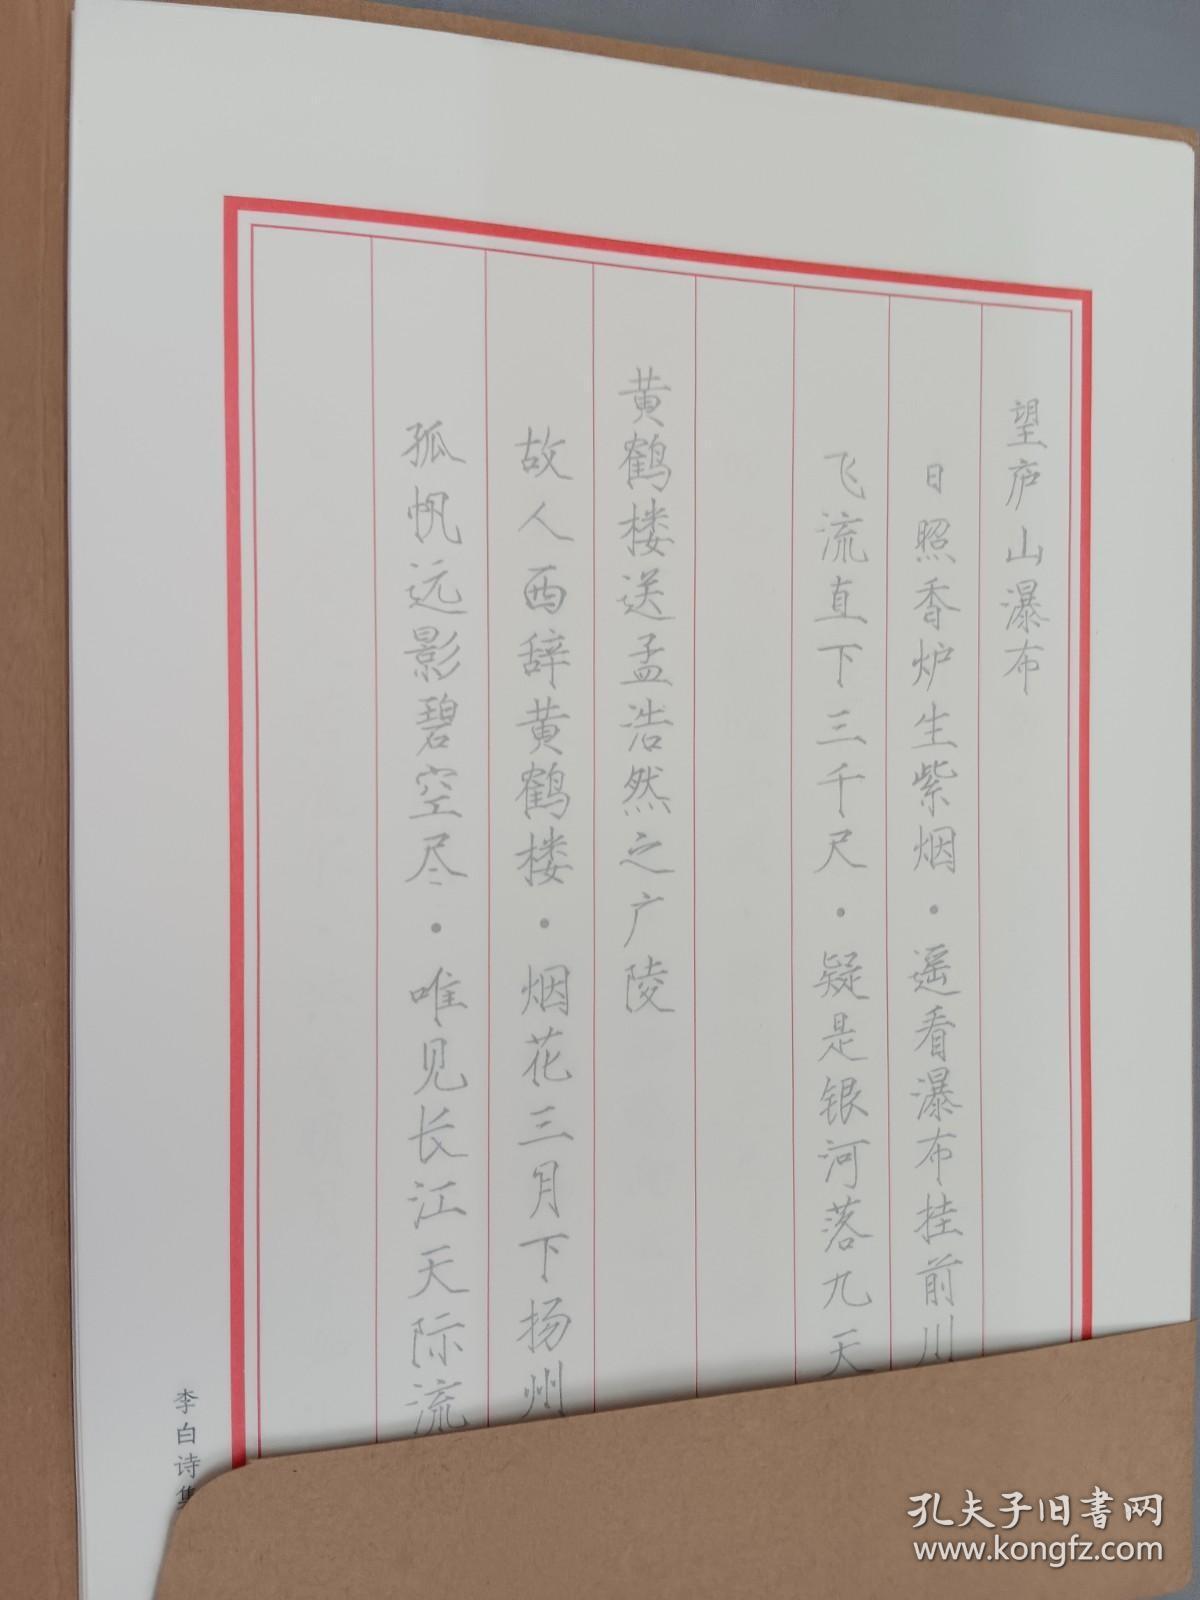 望庐山瀑布
日照香炉生紫烟·遥看瀑布挂前川
飞流直下三千尺·疑是银河落九天
黄鹤楼送孟浩然之广陵
故人西辞黄鹤楼·烟花三月下扬州
孤帆远影碧空尽·唯见长江天际流
李白诗集
孔夫子旧书网
www.kongfz.com